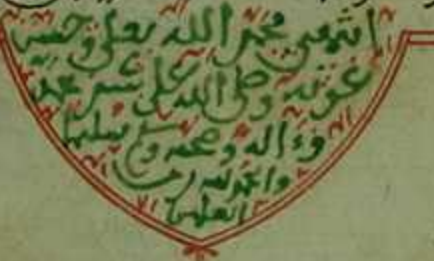 انتهى بحمد الله تعلى وحسن
عونه وصلى الله على سيدنا محمد
وءاله وصحبه وسلم تسليما
والحمد لله رب
العلمين